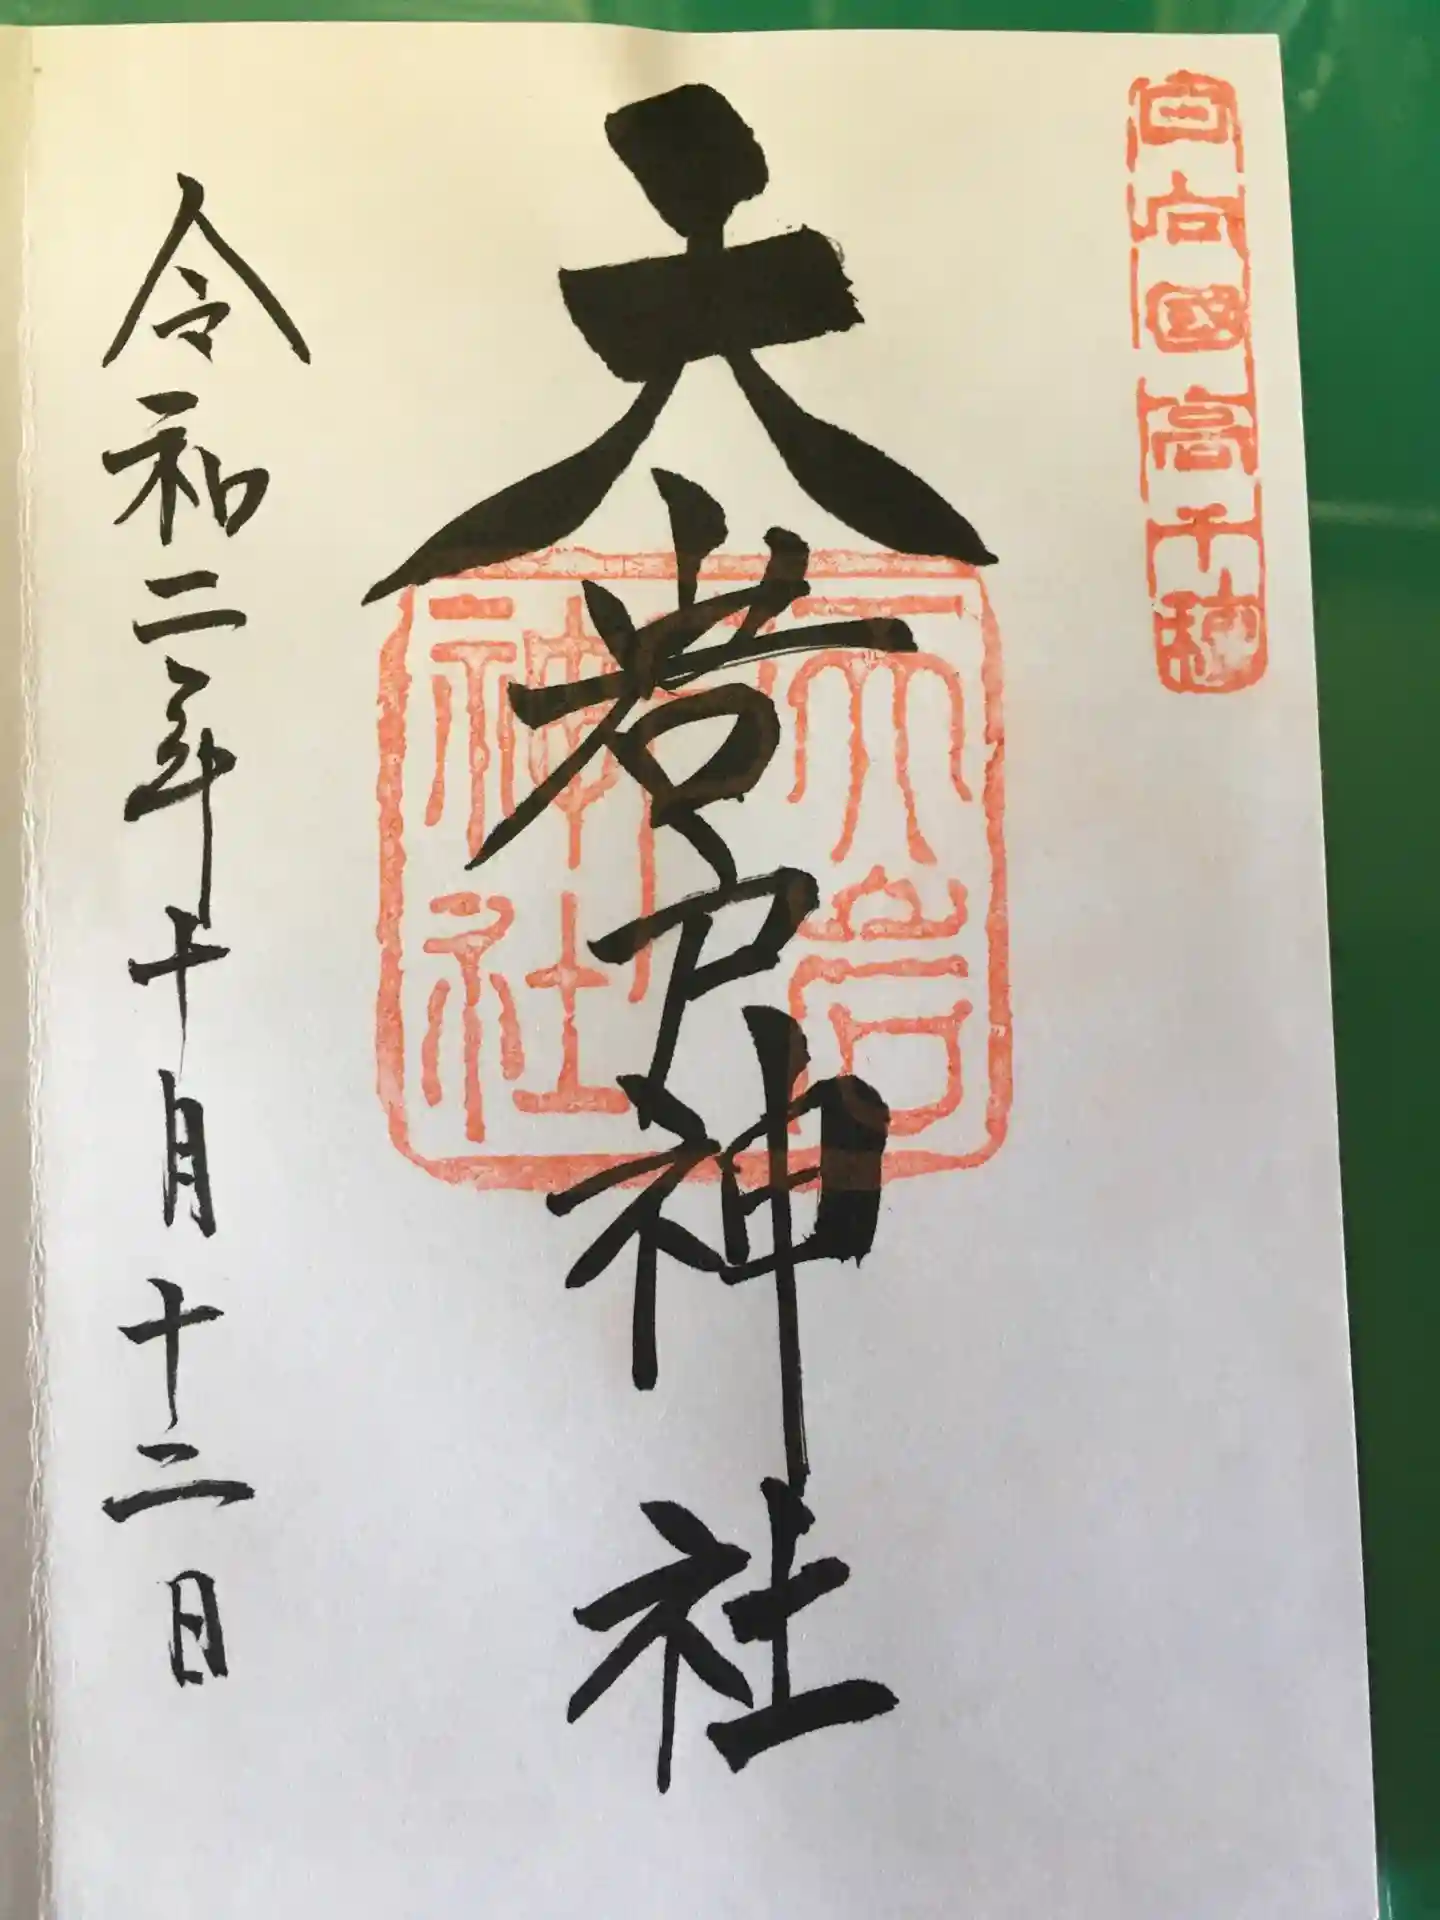 日向國高千穂
天岩戸神社
天岩戸神社
令和二年十月十二日